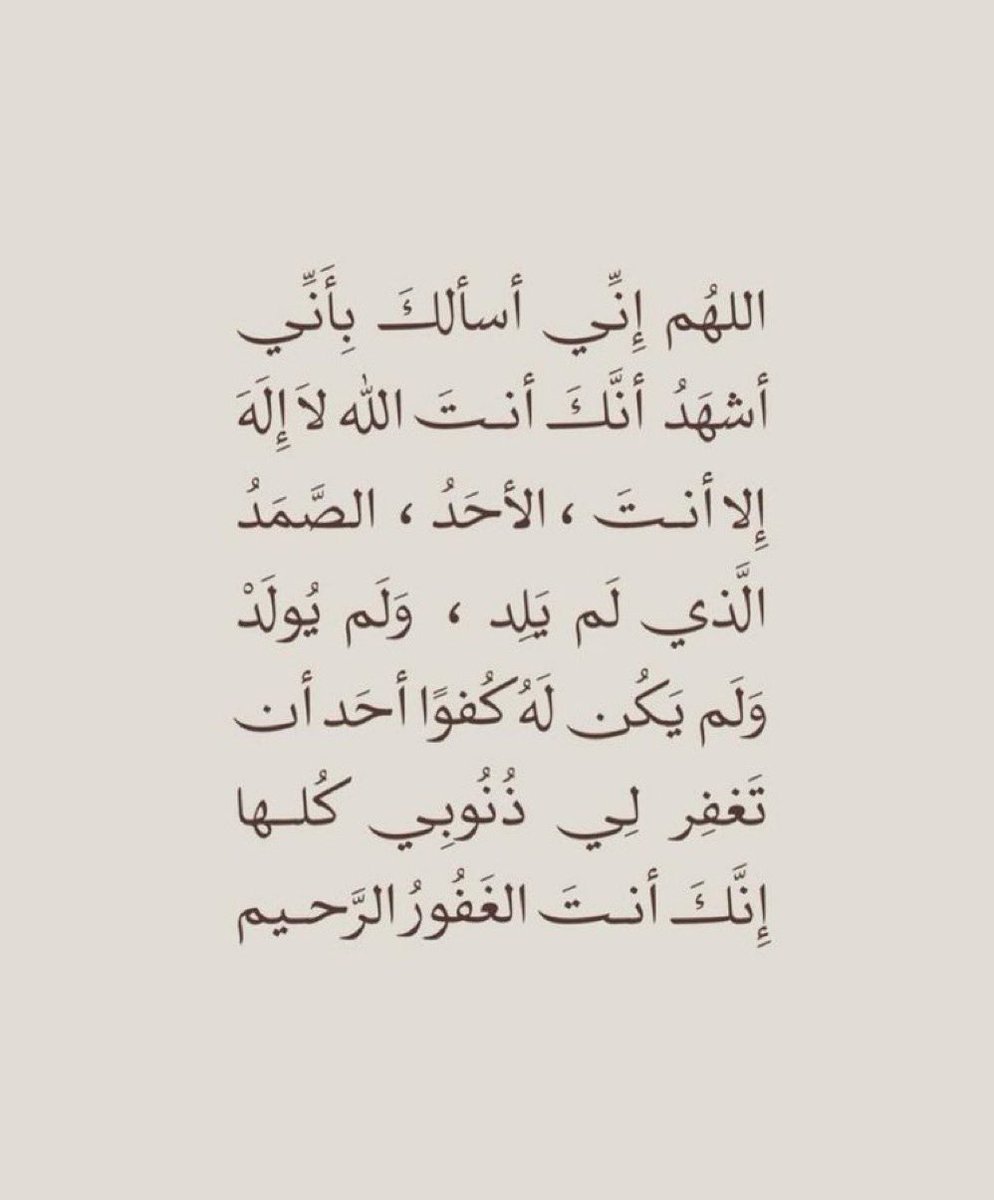 اللهُم إِنِّي أسألكَ بِأَنِّي
أشهَدُ أنَّكَ أنـتَ اللّٰه لاَ إِلَهَ
إِلا أنـتَ ، الأحَدُ ، الصَّمَدُ
الَّذي لَم يَلِد ، وَلَم يُولَدْ
وَلَم يَكُن لَهُ كُفوًا أحَد أن
تَغفِر لِي ذُنُوبِي كُلـها
إِنَّكَ أنـتَ الغَفُورُ الرَّحـيم